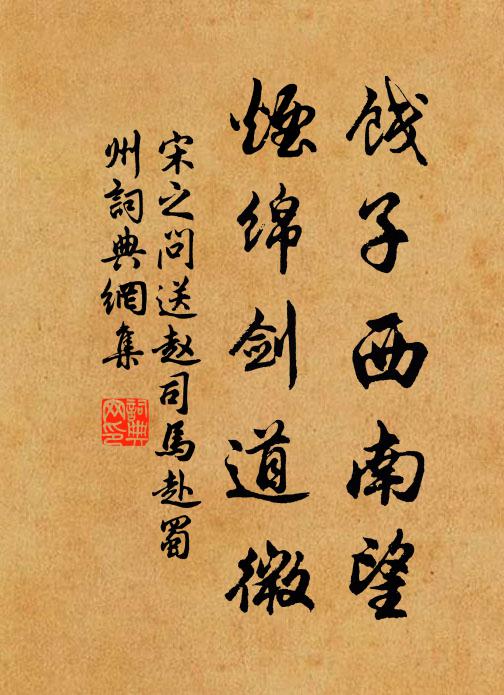 饯子西南望
煙绵剑道微
宋之问送赵司馬赴蜀
州詞典網集
詞典
网印